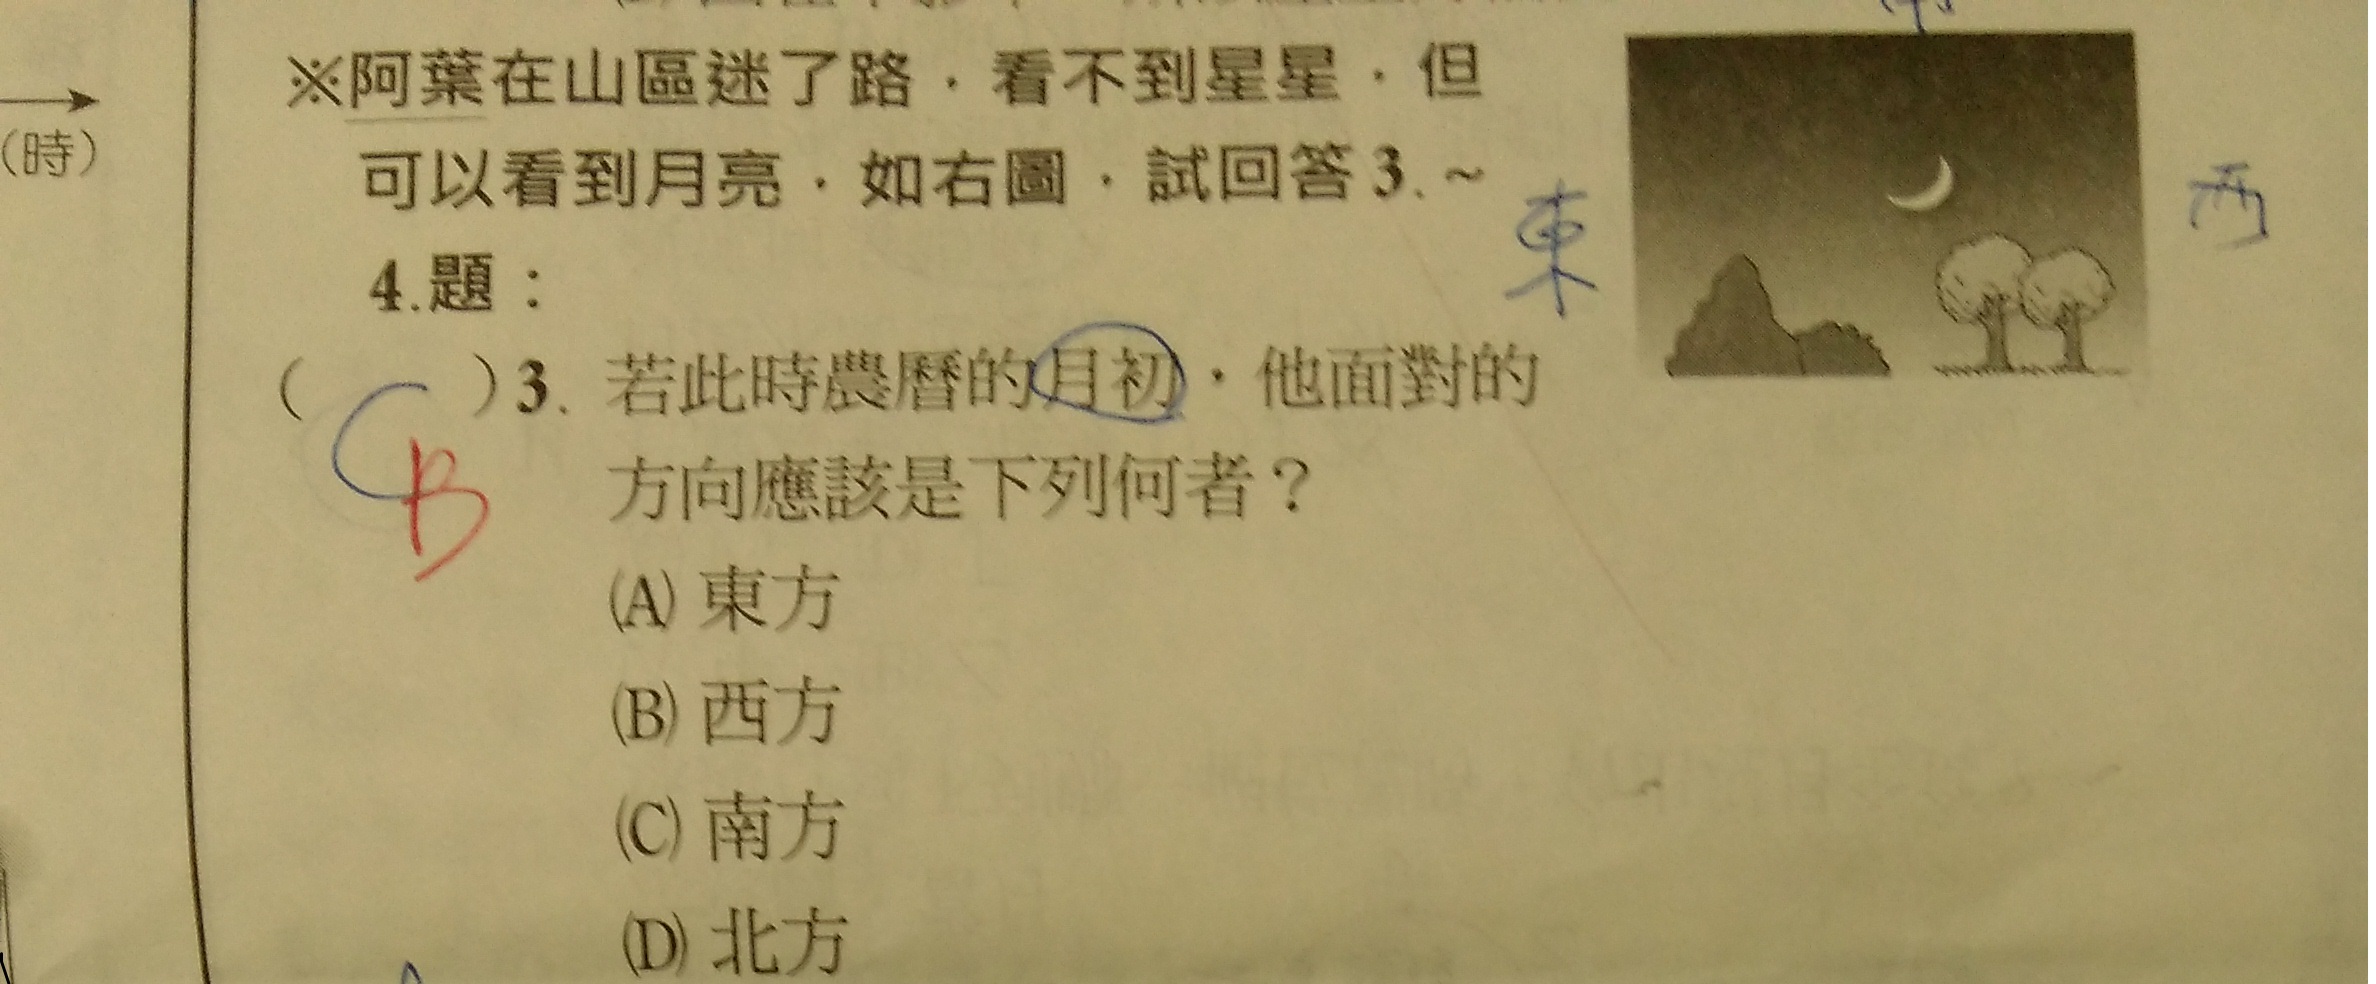 ※阿葉在山區迷了路，看不到星星，但
可以看到月亮，如右圖，試回答3.～
4.題：
東
西
(時)
( C )3. 若此時農曆的月初，他面對的
B
方向應該是下列何者？
(A) 東方
(B) 西方
(C) 南方
(D) 北方